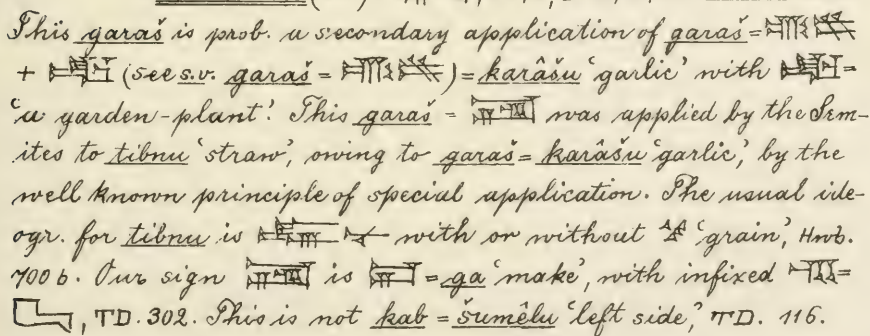 This garaš is prob. a secondary application of garaš =
+ (see s.v. garaš = ) = karâšu 'garlic' with =
'a garden-plant'. This garaš = was applied by the Sem-
ites to tibnu 'straw', owing to garaš = karâšu 'garlic', by the
well known principle of special application. The usual ide-
ogr. for tibnu is with or without 'grain', Hwb.
700 b. Our sign is = ga 'make', with infixed =
, TD. 302. This is not kab = šumêlu 'left side', TD. 116.